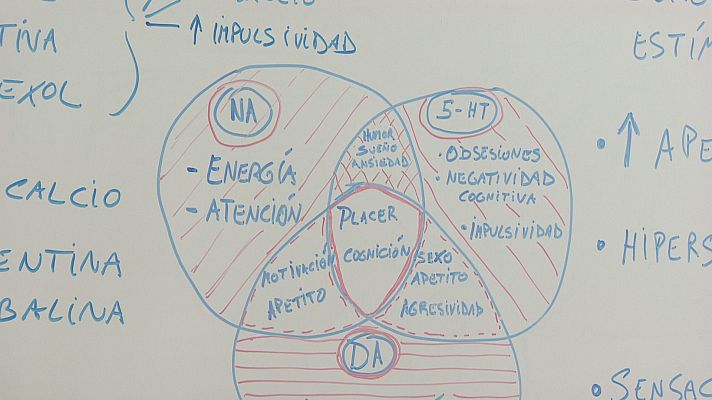 TINA
EXOL
↑ IMPULSIVIDAD
ESTÍM
NA
- ENERGÍA
- ATENCIÓN
HUMOR
SUEÑO
ANSIEDAD
5-HT
• OBSESIONES
• NEGATIVIDAD
COGNITIVA
• IMPULSIVIDAD
PLACER
COGNICIÓN
MOTIVACIÓN
APETITO
SEXO
APETITO
AGRESIVIDAD
DA
CALCIO
ENTINA
BALINA
• ↑ APE
• HIPERS
• SENSAC